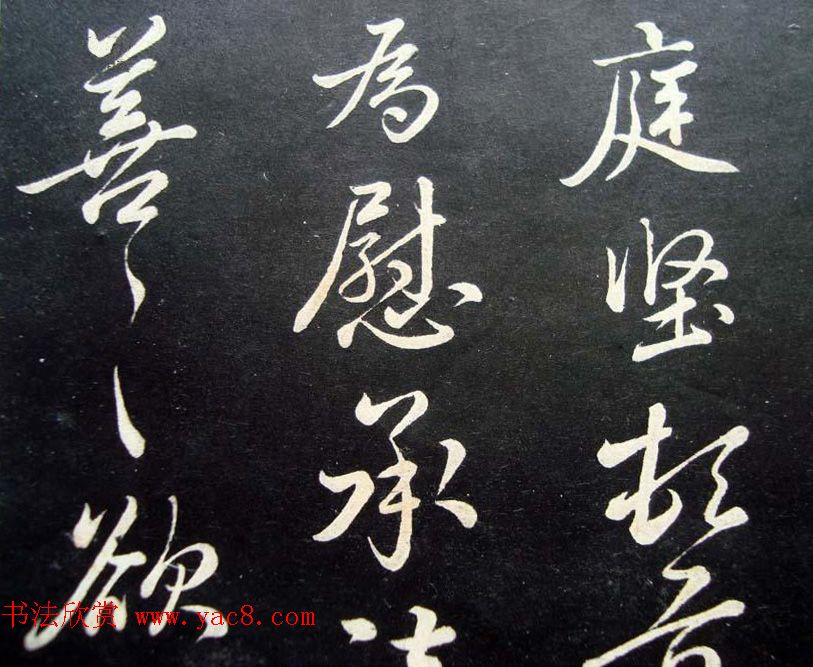 庭坚顿首
为慰承
善〻欲
书法欣赏 www.yac8.com